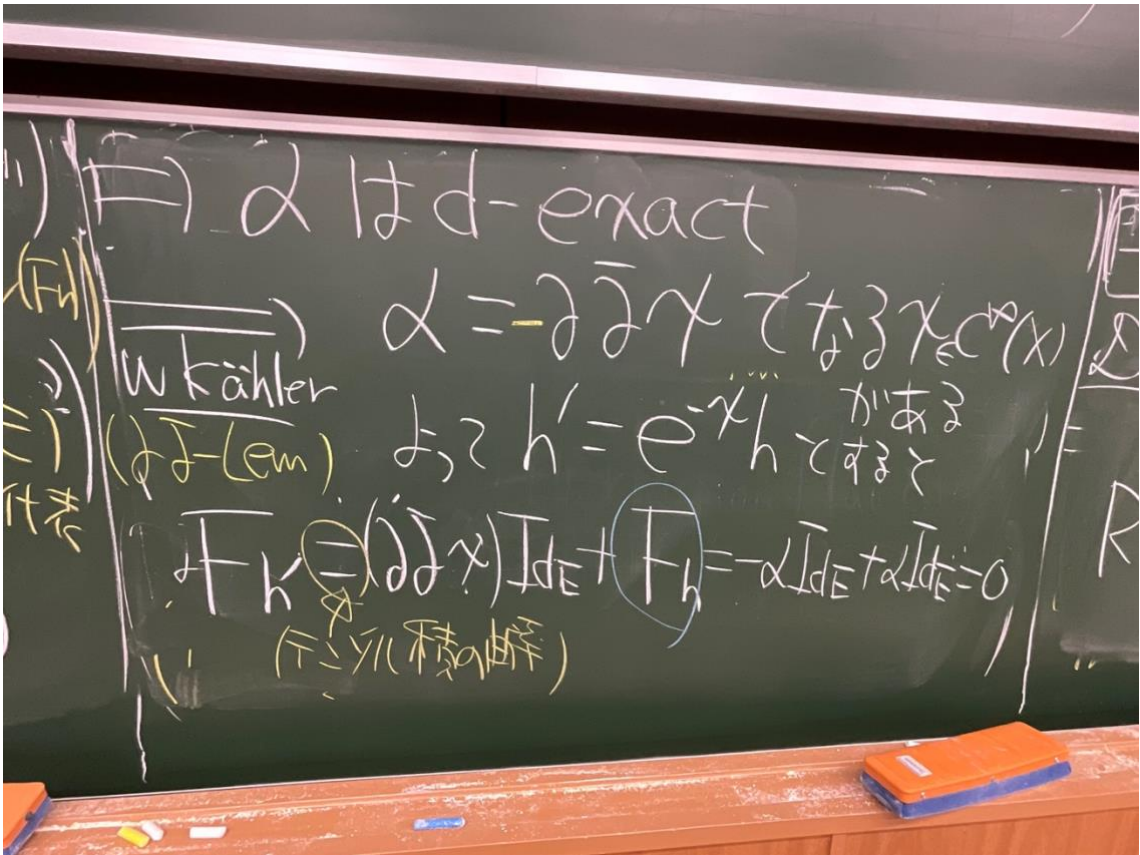 ⇒ α は d-exact
⟹ α = -∂∂̄χ となる χ∈C^∞(X)
ω Kähler がある
(∂∂̄-Lem) よって h' = e^{-χ}h とすると
F_{h'} = (∂∂̄χ)Id_E + F_h = -αId_E + αId_E = 0
(テンソル積の曲率)